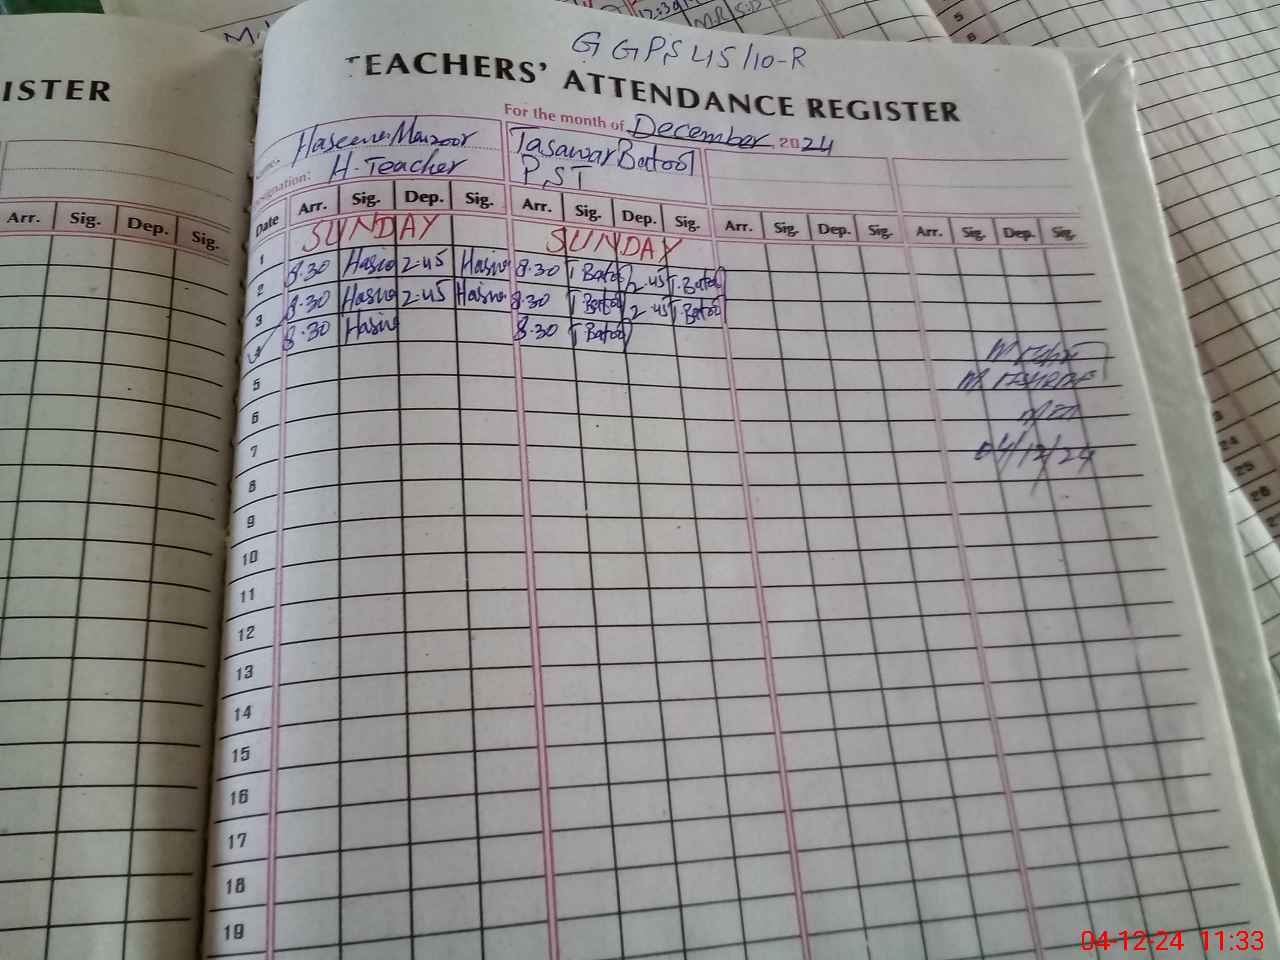 G G P S 45/10-R
ISTER
TEACHERS' ATTENDANCE REGISTER
For the month of December 2024
Manzoor Tasawar Batool
H-Teacher PST
Arr. Sig. Dep. Sig. Date Arr. Sig. Dep. Sig. Arr. Sig. Dep. Sig. Arr. Sig. Dep. Sig. Arr. Sig. Dep. Sig.
1 SUNDAY SUNDAY
2 8.30 2-45 8.30 T.Batool 2-45 T.Batool
3 8.30 2-45 8.30 T.Batool 2-45 T.Batool
4 8.30 8.30 T.Batool
5
6
7
8
9
10
11
12
13
14
15
16
17
18
19
04/12/24
24
25
26
04-12-24 11:33